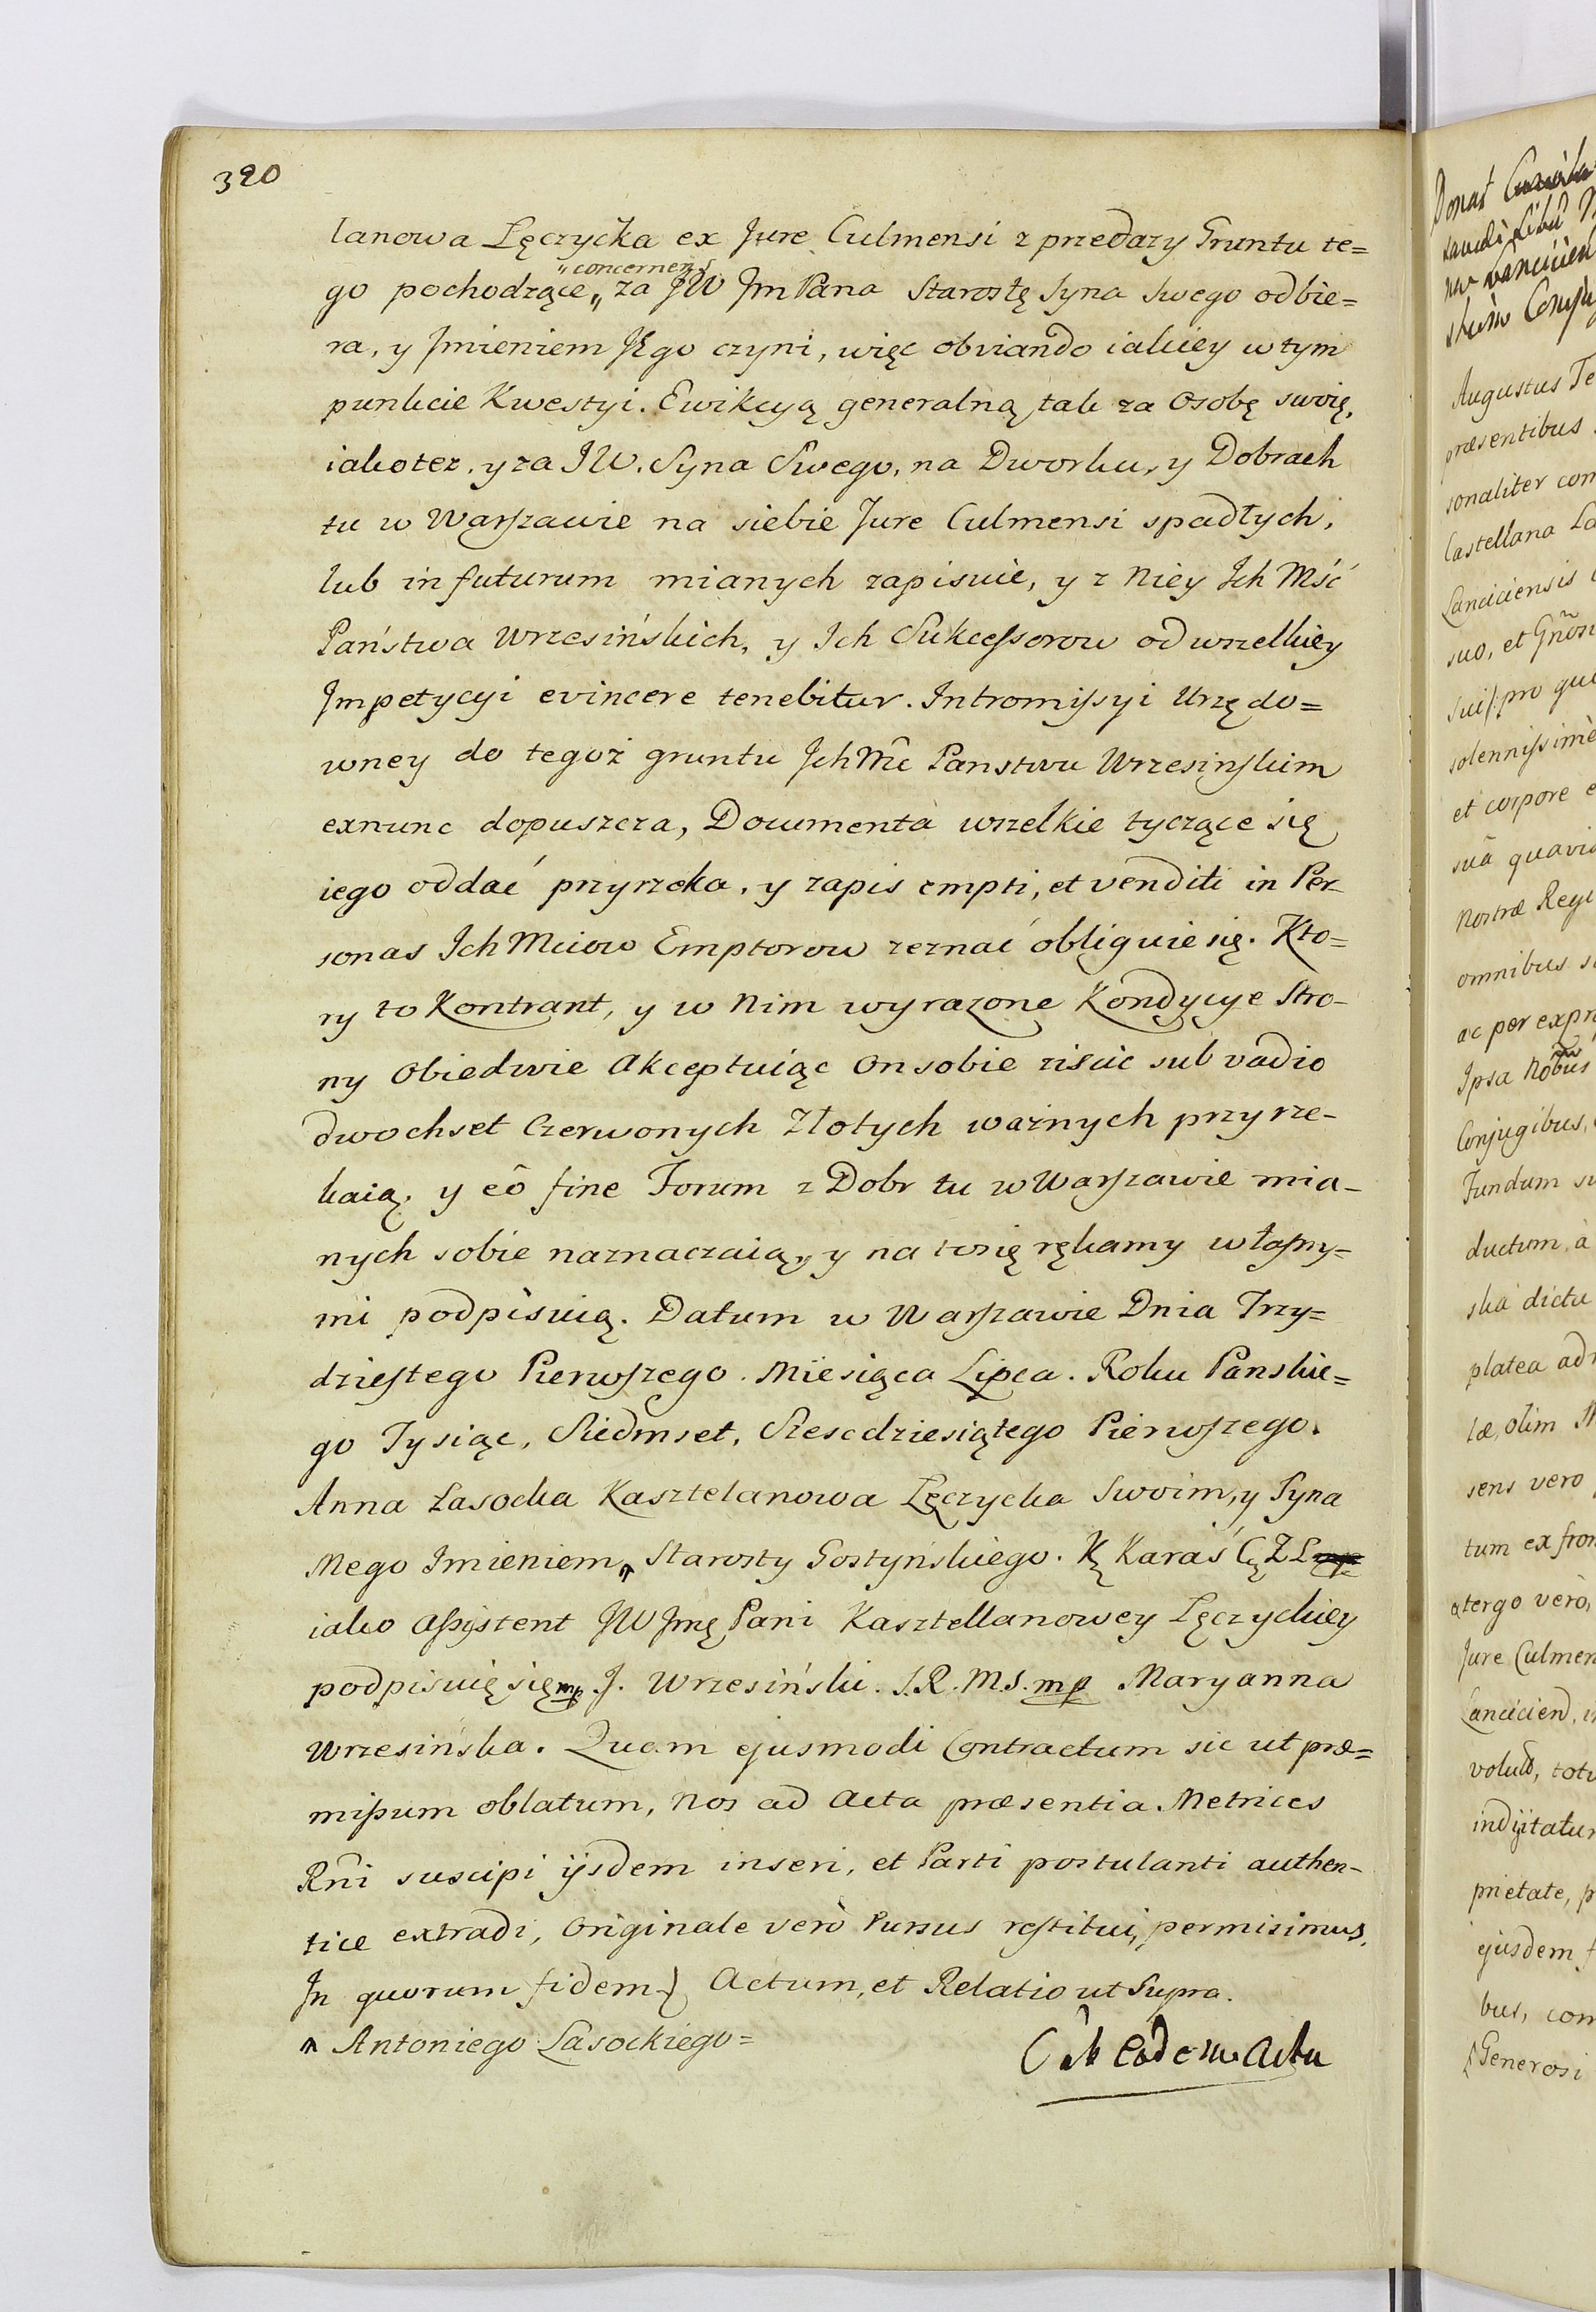 320
lanowa Lęczycka ex Jure Culmensi z przedazy Gruntu te=
"concernens
go pochodzące,, za JW JmPana Starostę Syna Swego odbie=
ra, y Jmieniem JEgo czyni, więc obviando iakiey w tym
punkcie Kwestyi. Ewikcyą generalną tak za Osobę swoię,
iakotez, y za JW. Syna Swego, na Dworku, y Dobrach
tu w Warszawie na siebie Jure Culmensi spadłych,
lub in futurum mianych zapisuie, y z Niey Ich Mść
Państwa Wrzesińskich, y Ich Sukcessorow od wszelkiey
Jmpetycyi evincere tenebitur. Intromissyi Urzędo=
wney do tegoż gruntu Jch Mć Panstwu Wrzesińskim
exnunc dopuszcza, Documenta wszelkie tyczące się
iego oddać przyrzeka, y zapis empti, et venditi in Per
sonas Ich Mciow Emptorow zeznać obliguie się. Kto=
ry to Kontrant, y w Nim wyrazone Kondycye Stro-
ny Obiedwie Akceptuiąc On sobie ziścić sub vadio
dwochset Czerwonych Złotych ważnych przyrze-
kaią, y eô fine Forum z Dobr tu w Warszawie mia-
nych sobie naznaczaią, y na to się rękamy własny=
mi podpisuią. Datum w Warszawie Dnia Trzy=
dziestego Pierwszego. Miesiąca Lipca. Roku Panskie=
go Tysiąc, Siedmset, Szescdziesiątego Pierwszego.
Anna Łasocka Kasztelanowa Lęczycka Swoim, y Syna
Mego Imieniem,, Starosty Gostyńskiego. K Karaś C Z L
iako Assystent JW Jmę Pani Kasztellanowey Lęczyckiey
podpisuię się mp. J. Wrzesiński. S.R.M.S. mp Maryanna
Wrzesińska. Quam ejusmodi Contractum sic ut præ=
missum oblatum, Nos ad Acta præsentia Metrices
Rñi suscipi ijsdem inseri, et Parti postulanti authen-
tice extradi, Originale verò rursus restitui, permisimus.
In quorum fidem Actum, et Relatio ut Supra.
Antoniego Lasockiego=
eadem Acta
Augustus Te
præsentibus
sonaliter com
Castellana La
Lanciciensis
suo, et Gñosi
sui pro qui
solennissimè
et corpore e
suâ quavis
Nostræ Regi
omnibus
ac per expr
Ipsa Nõbus
Conjugibus,
Fundum su
ductum, à
ska dictu
platea ad
læ, olim
sens vero
tum ex fron
atergo verò,
Jure Culmen
Lanciciend,
toto
indijitatur
prietate, p
ejusdem f
bus, com
Generosi